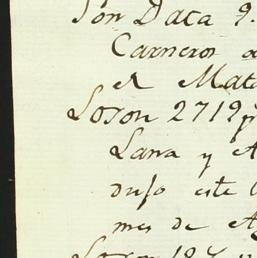 Son Data 9.
Carneros
el Mata
Loson 2719
Lana y
dujo este
mes de
Loson